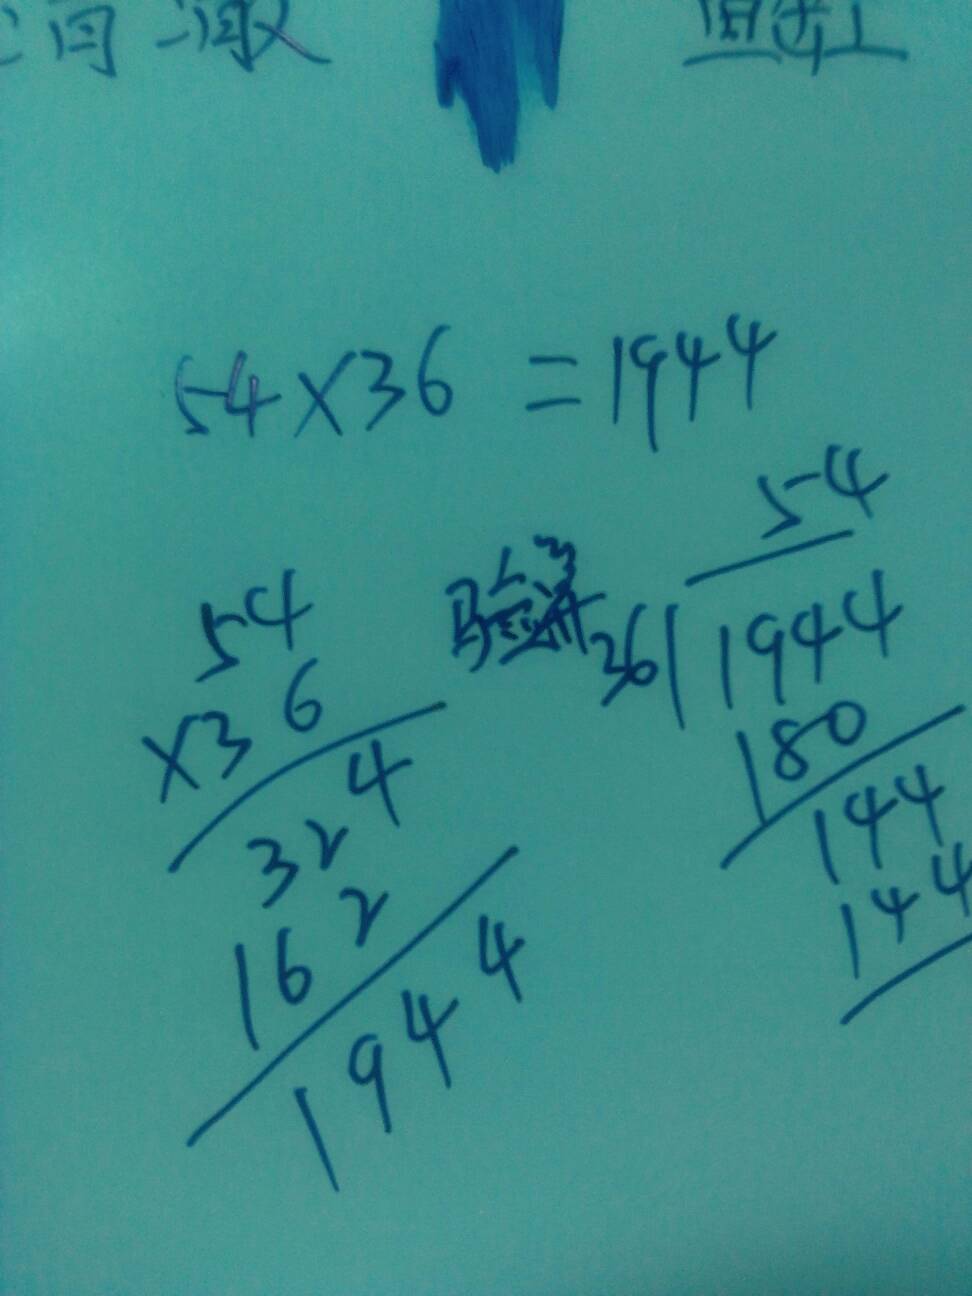 54×36=1944
54
×36
324
162
1944
验算
54
36 1944
180
144
144